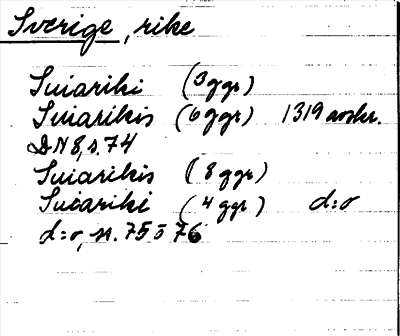 Sverige, rike
Suiariki (3 ggr)
Suiarikis (6 ggr) 1319 avskr.
DN 8, s. 74
Suiarikis (8 ggr)
Suiariki (4 ggr) d:o
d:o, s. 75 o 76